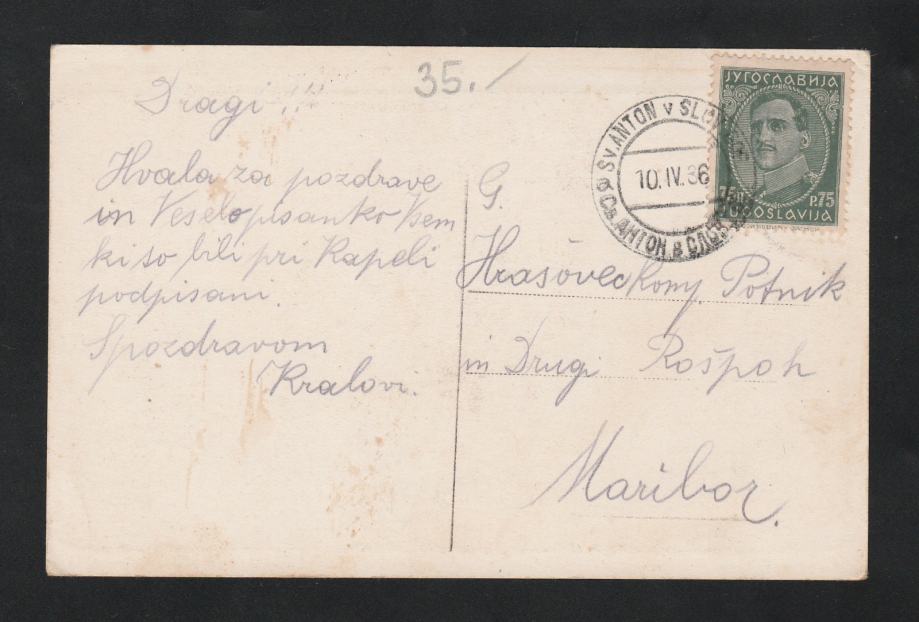 35.-/
Dragi!!
Hvala za pozdrave
in Veselo pisanko Vsem
ki so bili pri Kapeli
podpisani.
S pozdravom
Kralovi.
SV. ANTON V SLOV
10.IV.36
СВ. АНТОН В СЛОВ
ЈУГОСЛАВИЈА
P.75
JUGOSLAVIJA
G.
Hrašovec Potnik
in Drugi Rošpoh
Maribor.